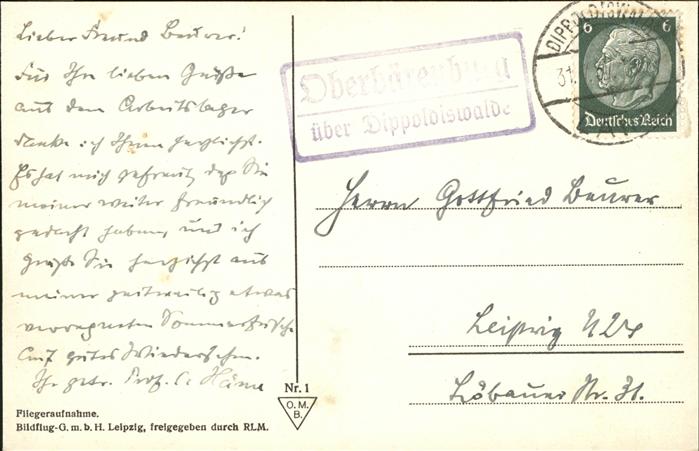 Lieber Freund Beurer!
Für Ihre lieben Grüße
aus dem Arbeitslager
danke ich Ihnen herzlichst.
Es hat mich gefreut, daß Sie
meiner weiter freundlich
gedacht haben, und ich
grüße Sie herzlichst aus
meiner zeitweilig etwas
verregneten Sommerfrische.
Auf gutes Wiedersehen.
Ihr getr. Prof.
Fliegeraufnahme.
Bildflug-G. m. b. H. Leipzig, freigegeben durch RLM.
Nr. 1
O. M.
B.
Oberbärenburg
über Dippoldiswalde
DIPPOLDISWALDE
31
6 6
Deutsches Reich
Herrn Gottfried Beurer
Leipzig N 24
Löbauer Str. 31.